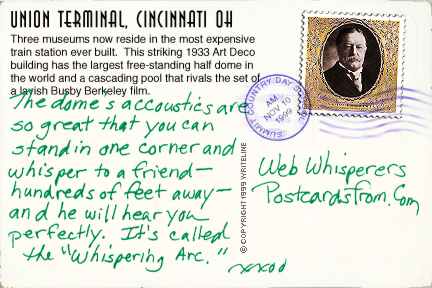 UNION TERMINAL, CINCINNATI OH
Three museums now reside in the most expensive
train station ever built. This striking 1933 Art Deco
building has the largest free-standing half dome in
the world and a cascading pool that rivals the set of
a lavish Busby Berkeley film.
The dome's accoustics are
so great that you can
stand in one corner and
whisper to a friend—
hundreds of feet away—
and he will hear you
perfectly. It's called
the "Whispering Arc."
xxoo
© COPYRIGHT 1999 WRITELINE
SUMMIT COUNTRY DAY SCHOOL
AM
NOV 10
1999
Web Whisperers
PostcardsFrom.Com